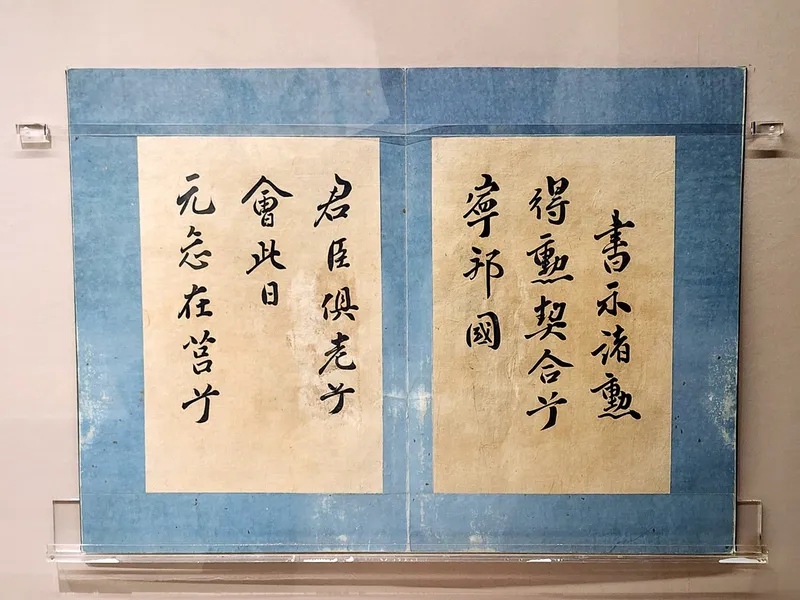 書示諸勳
得勳契合兮
寧邦國
君臣俱老兮
會此日
无忘在莒兮